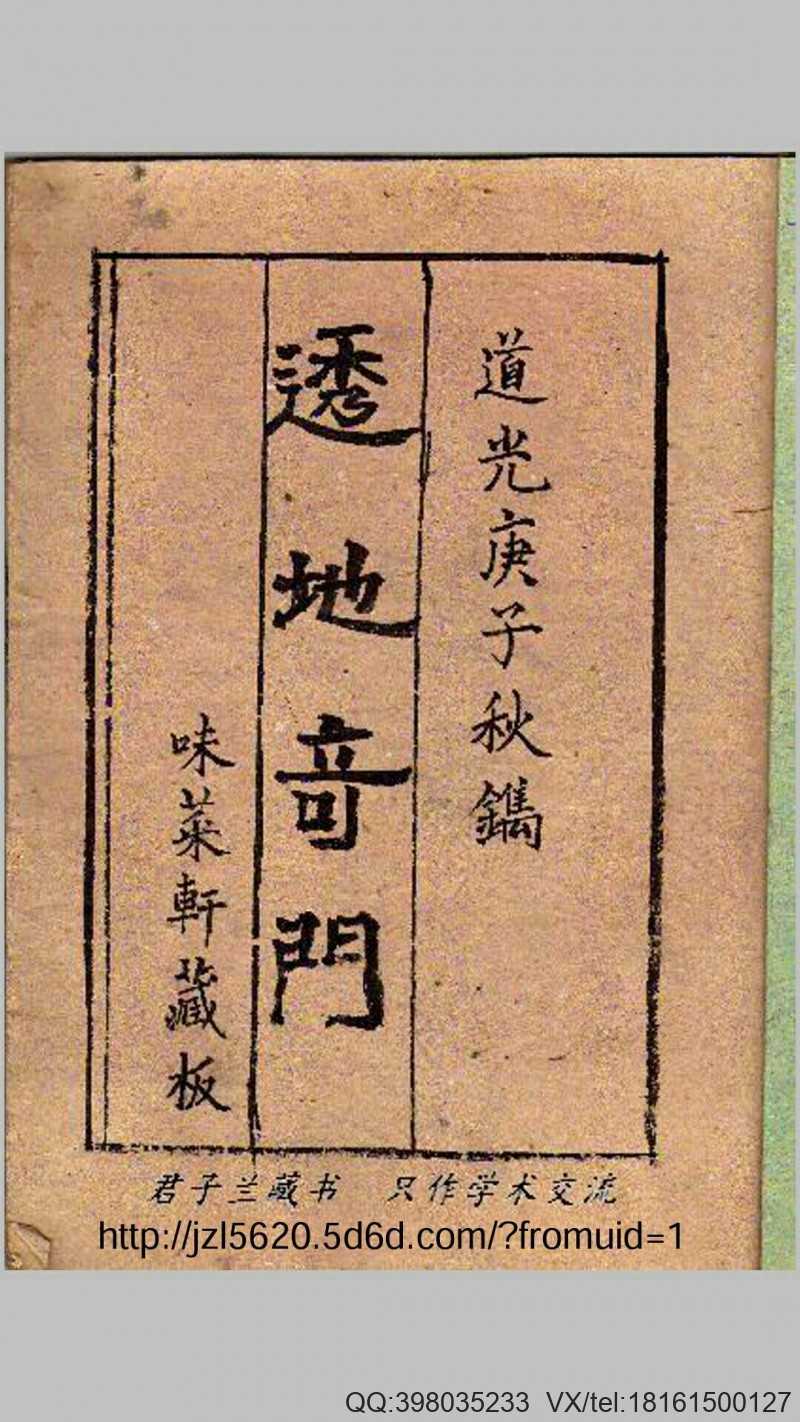 道光庚子秋鐫
透地竒門
味菜軒藏板
君子兰藏书 只作学术交流
http://jzl5620.5d6d.com/?fromuid=1
QQ:398035233 VX/tel:18161500127